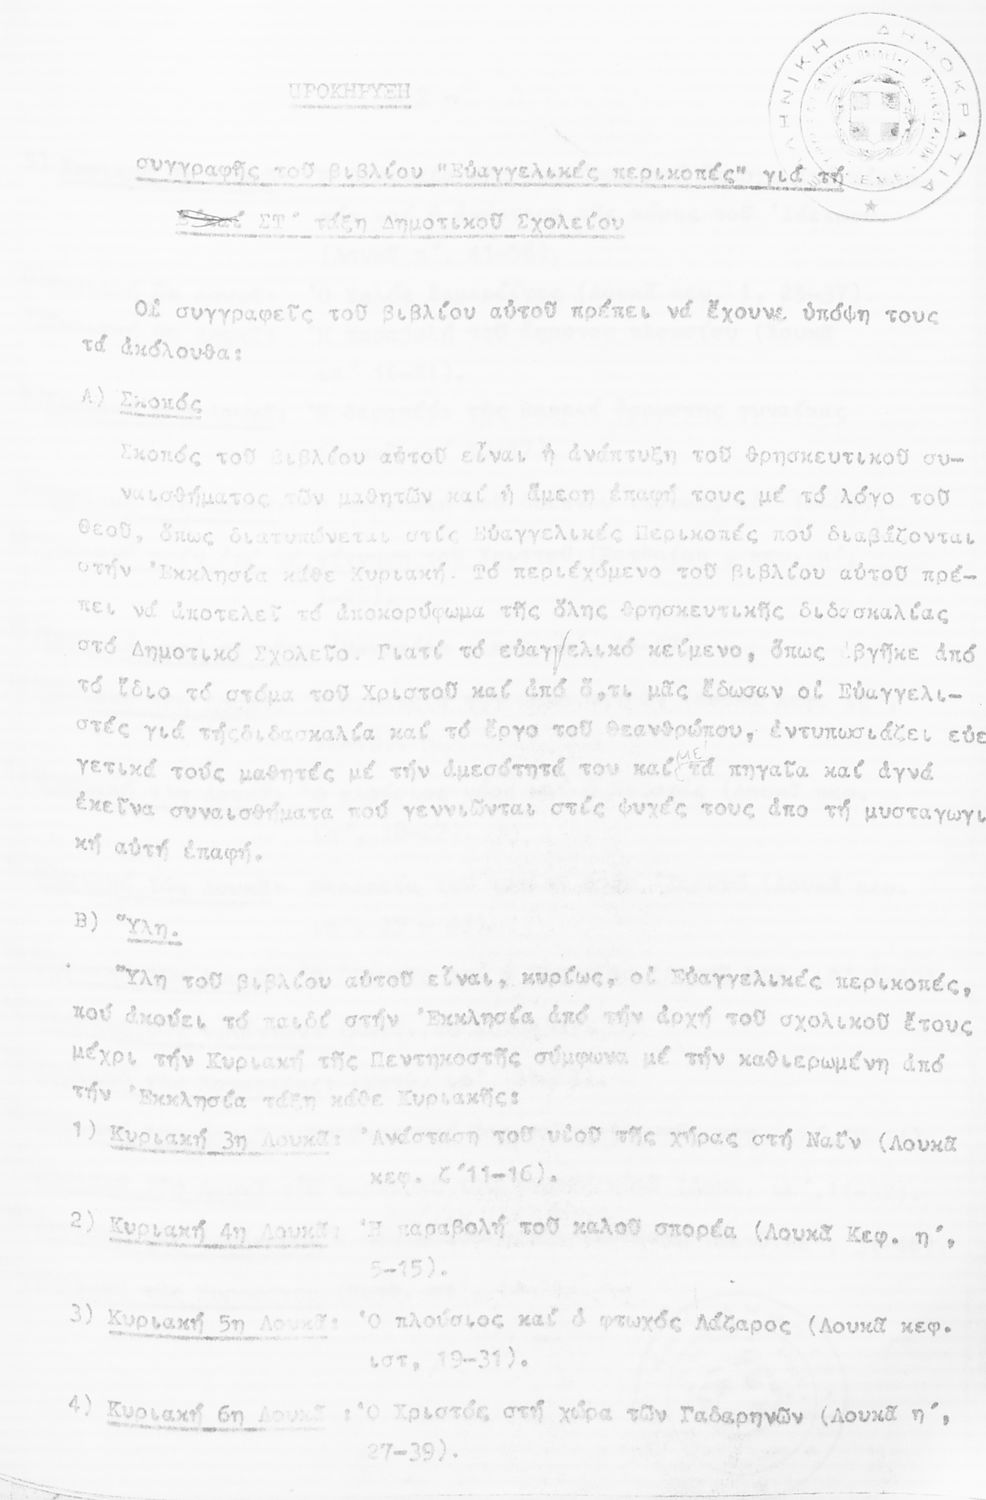 ΕΛΛΗΝΙΚΗ ΔΗΜΟΚΡΑΤΙΑ
ΠΡΟΚΗΡΥΞΗ
συγγραφῆς τοῦ βιβλίου "Εὐαγγελικές περικοπές" γιά τή
ΣΤ΄ τάξη Δημοτικοῦ Σχολείου
Οἱ συγγραφεῖς τοῦ βιβλίου αὐτοῦ πρέπει νά ἔχουνε ὑπόψη τους
τά ἀκόλουθα:
Α) Σκοπός
Σκοπός τοῦ βιβλίου αὐτοῦ εἶναι ἡ ἀνάπτυξη τοῦ θρησκευτικοῦ συ-
ναισθήματος τῶν μαθητῶν καί ἡ ἄμεση ἐπαφή τους μέ τό λόγο τοῦ
Θεοῦ, ὅπως διατυπώνεται στίς Εὐαγγελικές Περικοπές πού διαβάζονται
στήν Ἐκκλησία κάθε Κυριακή. Τό περιεχόμενο τοῦ βιβλίου αὐτοῦ πρέ-
πει νά ἀποτελεῖ τό ἀποκορύφωμα τῆς ὅλης θρησκευτικῆς διδασκαλίας
στό Δημοτικό Σχολεῖο. Γιατί τό εὐαγγελικό κείμενο, ὅπως ἐβγῆκε ἀπό
τό ἴδιο τό στόμα τοῦ Χριστοῦ καί ἀπό ὅ,τι μᾶς ἔδωσαν οἱ Εὐαγγελι-
στές γιά τήςδιδασκαλία καί τό ἔργο τοῦ Θεανθρώπου, ἐντυπωσιάζει εὐε
γετικά τούς μαθητές μέ τήν ἀμεσότητά του καί μέ τά πηγαῖα καί ἁγνά
ἐκεῖνα συναισθήματα πού γεννιῶνται στίς ψυχές τους ἀπο τή μυσταγωγι
κή αὐτή ἐπαφή.
Β) Ὕλη.
Ὕλη τοῦ βιβλίου αὐτοῦ εἶναι, κυρίως, οἱ Εὐαγγελικές περικοπές,
πού ἀκούει τό παιδί στήν Ἐκκλησία ἀπό τήν ἀρχή τοῦ σχολικοῦ ἔτους
μέχρι τήν Κυριακή τῆς Πεντηκοστῆς σύμφωνα μέ τήν καθιερωμένη ἀπό
τήν Ἐκκλησία τάξη κάθε Κυριακῆς:
1) Κυριακή 3η Λουκᾶ: Ἀνάσταση τοῦ υἱοῦ τῆς χήρας στή Ναΐν (Λουκᾶ
κεφ. ζ΄11-16).
2) Κυριακή 4η Λουκᾶ: Ἡ παραβολή τοῦ καλοῦ σπορέα (Λουκᾶ Κεφ. η΄,
5-15).
3) Κυριακή 5η Λουκᾶ: Ὁ πλούσιος καί ὁ φτωχός Λάζαρος (Λουκᾶ κεφ.
ιστ, 19-31).
4) Κυριακή 6η Λουκᾶ : Ὁ Χριστός στή χώρα τῶν Γαδαρηνῶν (Λουκᾶ η΄,
27-39).